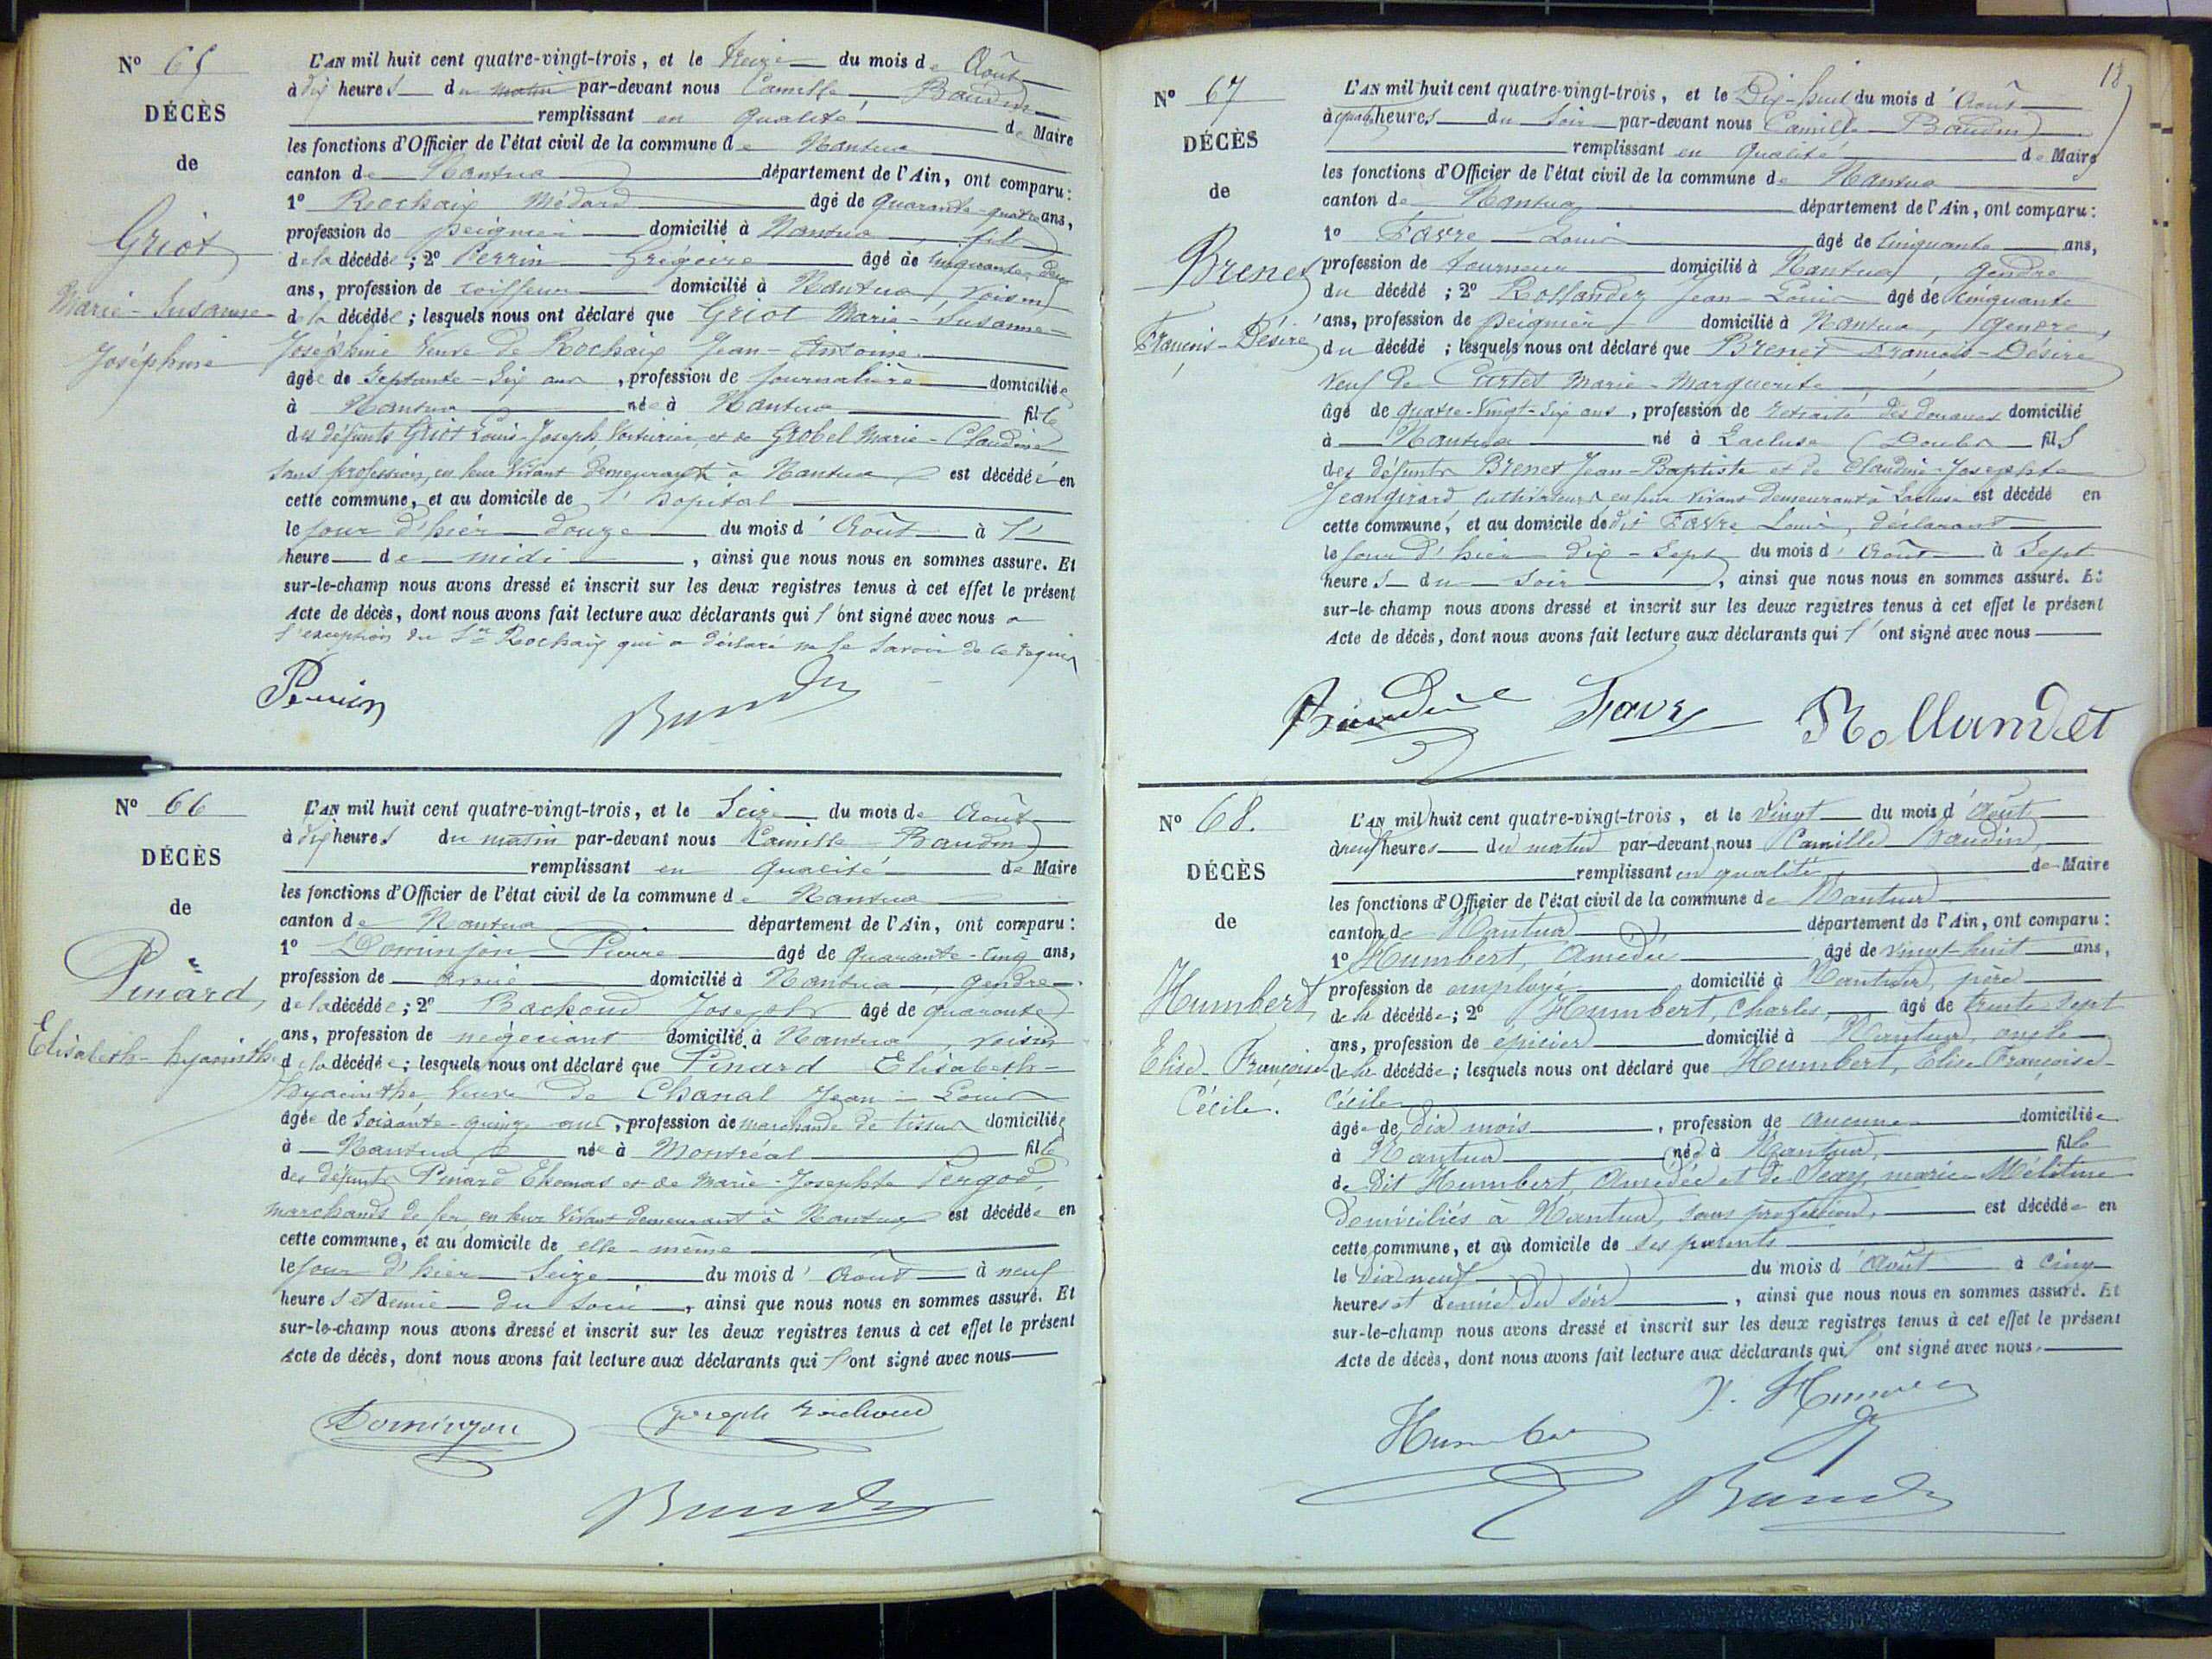 Nº 65
DÉCÈS
de
Griot
Marie-Susanne-
Joséphine
L'AN mil huit cent quatre-vingt-trois, et le treize du mois de Août
à dix heures du matin par-devant nous Camille Baudin
remplissant en qualité de Maire
les fonctions d'Officier de l'état civil de la commune de Nantua
canton de Nantua département de l'Ain, ont comparu:
1º Rochaix Médard âgé de quarante-quatre ans,
profession de peignier domicilié à Nantua, fils
de la décédée; 2º Perrin Grégoire âgé de cinquante-deux
ans, profession de coiffeur domicilié à Nantua, voisin
de la décédée; lesquels nous ont déclaré que Griot Marie-Susanne-
Joséphine Veuve de Rochaix Jean-Antoine
âgée de Septante-Six ans, profession de journalière domiciliée
à Nantua née à Nantua fille
des défunts Griot Louis-Joseph, Voiturier et de Grobel Marie-Claudine
sans profession, en leur vivant demeurant à Nantua est décédée en
cette commune, et au domicile de l'hopital
le jour d'hier douze du mois d'Août à l'
heure de midi, ainsi que nous nous en sommes assuré. Et
sur-le-champ nous avons dressé et inscrit sur les deux registres tenus à cet effet le présent
Acte de décès, dont nous avons fait lecture aux déclarants qui l'ont signé avec nous a
l'exception du Sr Rochaix qui a déclaré ne le savoir de ce requis
Perrin
Baudin
Nº 66
DÉCÈS
de
Pinard,
Elisabeth-hyacinthe
L'AN mil huit cent quatre-vingt-trois, et le Seize du mois de Août
à dix heures du matin par-devant nous Camille Baudin
remplissant en qualité de Maire
les fonctions d'Officier de l'état civil de la commune de Nantua
canton de Nantua département de l'Ain, ont comparu:
1º Dominjon Pierre âgé de quarante-cinq ans,
profession de avoué domicilié à Nantua, gendre
de la décédée; 2º Bachoud Joseph âgé de quarante
ans, profession de négociant domicilié à Nantua, voisin
de la décédée; lesquels nous ont déclaré que Pinard Elisabeth-
hyacinthe, Veuve de Chanal Jean-Louis
âgée de Soixante-quinze ans, profession de marchande de tissus domiciliée
à Nantua née à Montréal fille
des défunts Pinard Thomas et de Marie-Josephte Pergod,
marchands de fer en leur vivant demeurant à Nantua est décédée en
cette commune, et au domicile de elle-même
le jour d'hier Seize du mois d'Août à neuf
heures et demie du soir, ainsi que nous nous en sommes assuré. Et
sur-le-champ nous avons dressé et inscrit sur les deux registres tenus à cet effet le présent
Acte de décès, dont nous avons fait lecture aux déclarants qui l'ont signé avec nous
Dominjon
Joseph Bachoud
Baudin
18
Nº 67
DÉCÈS
de
Brenet
François-Désiré
L'AN mil huit cent quatre-vingt-trois, et le Dix-huit du mois d'Août
à quatre heures du Soir par-devant nous Camille Baudin
remplissant en qualité de Maire
les fonctions d'Officier de l'état civil de la commune de Nantua
canton de Nantua département de l'Ain, ont comparu:
1º Favre Louis âgé de cinquante ans,
profession de tourneur domicilié à Nantua, gendre
du décédé; 2º Rollandez Jean-Louis âgé de cinquante
ans, profession de peignier domicilié à Nantua, gendre,
du décédé; lesquels nous ont déclaré que Brenet François-Désiré
Veuf de Cartet Marie-Marguerite
âgé de quatre-vingt-six ans, profession de retraité des douanes domicilié
à Nantua né à Lacluse (Doubs fils
des défunts Brenet Jean-Baptiste et de Claudine-Josephte
Jeangirard cultivateurs en leur vivant demeurant à Lacluse est décédé en
cette commune, et au domicile de dit Favre Louis, déclarant
le jour d'hier dix-sept du mois d'Août à Sept
heures du Soir, ainsi que nous nous en sommes assuré. Et
sur-le-champ nous avons dressé et inscrit sur les deux registres tenus à cet effet le présent
Acte de décès, dont nous avons fait lecture aux déclarants qui l'ont signé avec nous
Baudin Favre Rollandet
Nº 68.
DÉCÈS
de
Humbert,
Elise-Françoise-
Cécile.
L'AN mil huit cent quatre-vingt-trois, et le vingt du mois d'Août
à neuf heures du matin par-devant nous Camille Baudin,
remplissant en qualité de Maire
les fonctions d'Officier de l'état civil de la commune de Nantua
canton de Nantua département de l'Ain, ont comparu:
1º Humbert, Amédée âgé de vingt-huit ans,
profession de employé domicilié à Nantua, père
de la décédée; 2º Humbert, Charles, âgé de trente sept
ans, profession de épicier domicilié à Nantua, oncle
de la décédée; lesquels nous ont déclaré que Humbert, Elise Françoise-
Cécile
âgée de dix mois, profession de aucune domiciliée
à Nantua née à Nantua, fille
de dit Humbert Amédée et de marie Mélitine
Domiciliés à Nantua, sans profession, est décédée en
cette commune, et au domicile de ses parents
le dix neuf du mois d'Août à cinq
heures et demie du soir, ainsi que nous nous en sommes assuré. Et
sur-le-champ nous avons dressé et inscrit sur les deux registres tenus à cet effet le présent
Acte de décès, dont nous avons fait lecture aux déclarants qui l'ont signé avec nous.
Humbert
Baudin